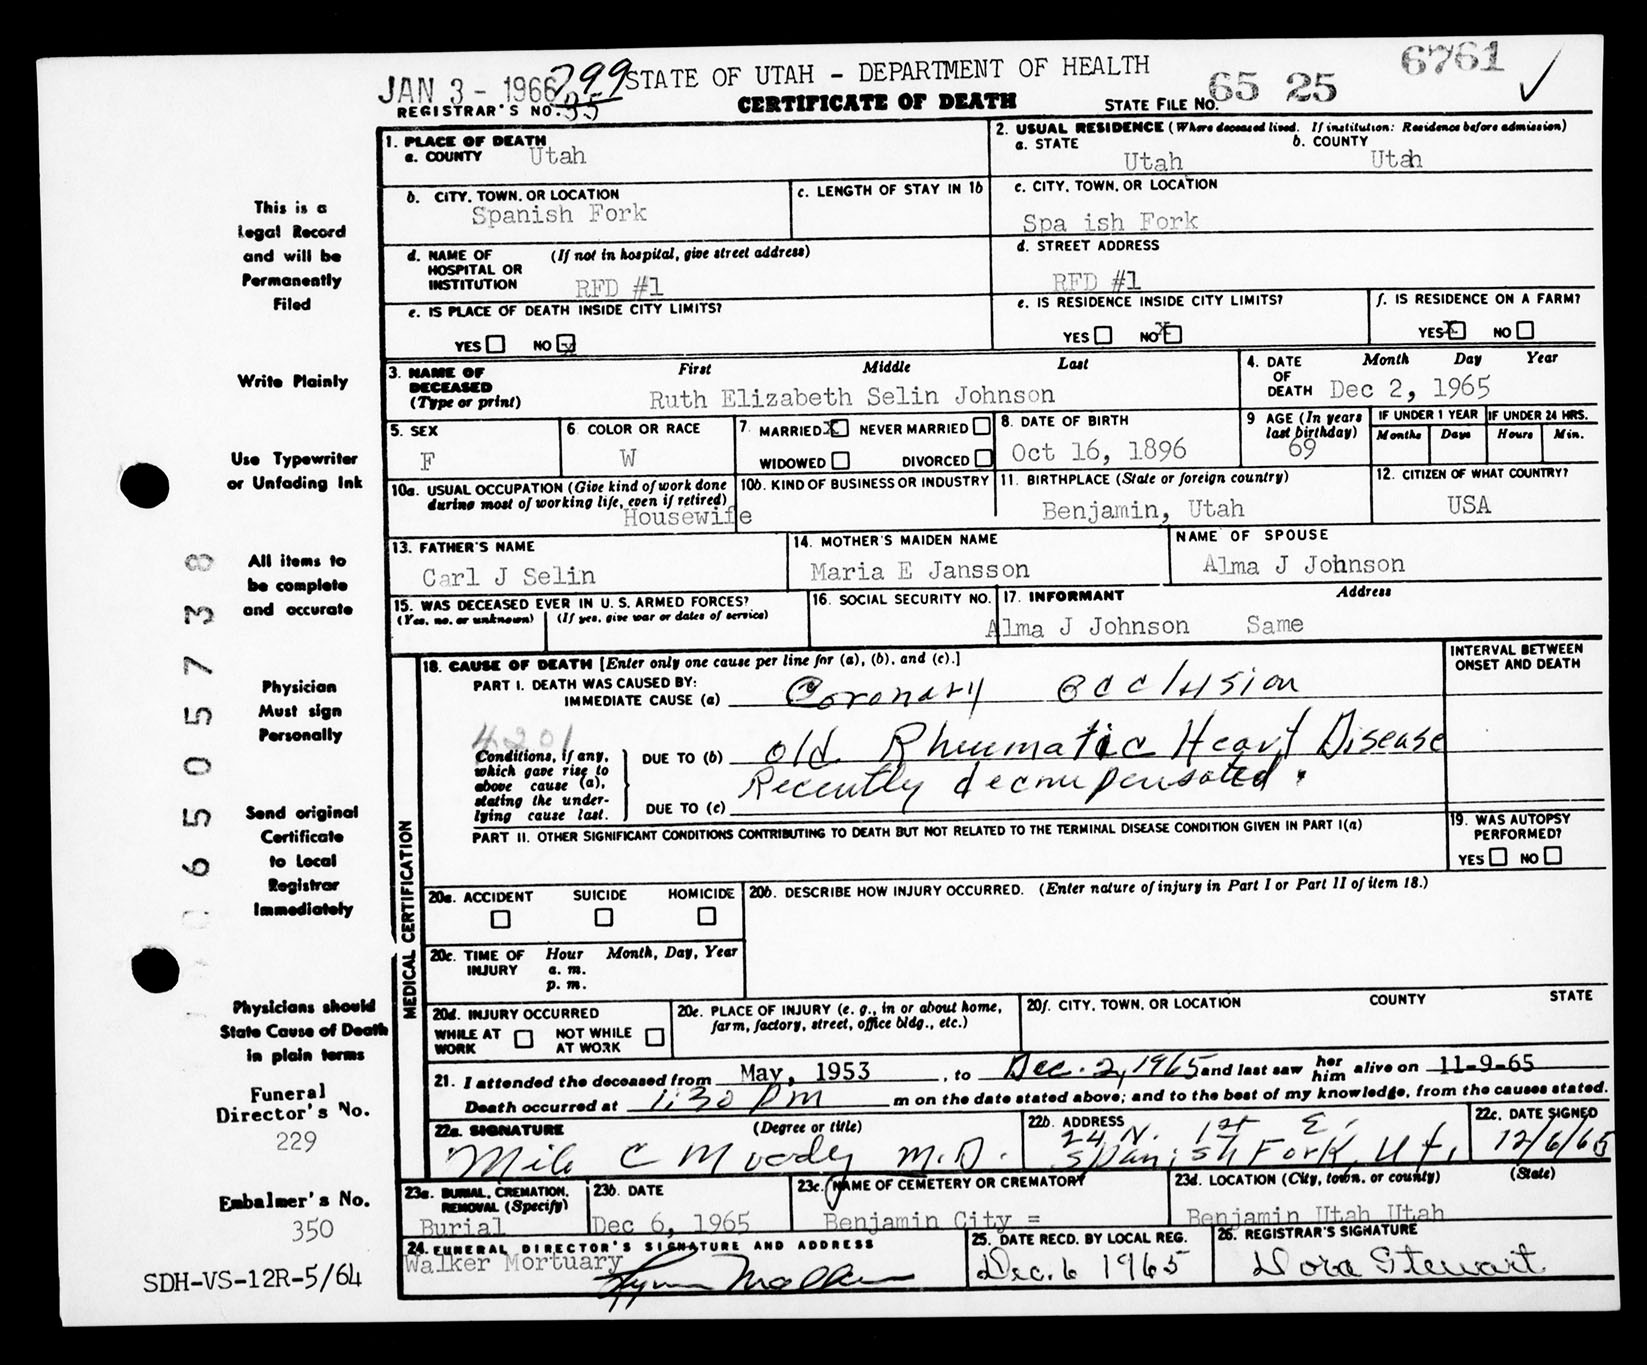 JAN 3 - 1966 299 STATE OF UTAH - DEPARTMENT OF HEALTH 6761
REGISTRAR'S NO. 35 CERTIFICATE OF DEATH STATE FILE NO. 65 25
1. PLACE OF DEATH
a. COUNTY Utah
2. USUAL RESIDENCE (Where deceased lived. If institution: Residence before admission)
a. STATE Utah b. COUNTY Utah
b. CITY, TOWN, OR LOCATION
Spanish Fork
c. LENGTH OF STAY IN 1b
c. CITY, TOWN, OR LOCATION
Spa ish Fork
d. NAME OF HOSPITAL OR INSTITUTION (If not in hospital, give street address)
RFD #1
d. STREET ADDRESS
RFD #1
e. IS PLACE OF DEATH INSIDE CITY LIMITS?
YES NO x
e. IS RESIDENCE INSIDE CITY LIMITS?
YES NO X
f. IS RESIDENCE ON A FARM?
YES X NO
3. NAME OF DECEASED (Type or print) First Middle Last
Ruth Elizabeth Selin Johnson
4. DATE OF DEATH Month Day Year
Dec 2, 1965
5. SEX
F
6 COLOR OR RACE
W
7. MARRIED X NEVER MARRIED
WIDOWED DIVORCED
8. DATE OF BIRTH
Oct 16, 1896
9 AGE (In years last birthday)
69
IF UNDER 1 YEAR IF UNDER 24 HRS.
Months Days Hours Min.
10a. USUAL OCCUPATION (Give kind of work done during most of working life, even if retired)
Housewife
10b. KIND OF BUSINESS OR INDUSTRY
11. BIRTHPLACE (State or foreign country)
Benjamin, Utah
12. CITIZEN OF WHAT COUNTRY?
USA
13. FATHER'S NAME
Carl J Selin
14. MOTHER'S MAIDEN NAME
Maria E Jansson
NAME OF SPOUSE
Alma J Johnson
15. WAS DECEASED EVER IN U. S. ARMED FORCES?
(Yes, no, or unknown) (If yes, give war or dates of service)
16. SOCIAL SECURITY NO.
17. INFORMANT Address
Alma J Johnson Same
MEDICAL CERTIFICATION
18. CAUSE OF DEATH [Enter only one cause per line for (a), (b), and (c).]
INTERVAL BETWEEN ONSET AND DEATH
PART I. DEATH WAS CAUSED BY:
IMMEDIATE CAUSE (a) Coronary occlusion
4201
Conditions, if any, which gave rise to above cause (a), stating the underlying cause last.
DUE TO (b) old Rheumatic Heart Disease
Recently decompensated.
DUE TO (c)
PART II. OTHER SIGNIFICANT CONDITIONS CONTRIBUTING TO DEATH BUT NOT RELATED TO THE TERMINAL DISEASE CONDITION GIVEN IN PART I(a)
19. WAS AUTOPSY PERFORMED?
YES NO
20a. ACCIDENT SUICIDE HOMICIDE
20b. DESCRIBE HOW INJURY OCCURRED. (Enter nature of injury in Part I or Part II of item 18.)
20c. TIME OF INJURY Hour a. m. p. m. Month, Day, Year
20d. INJURY OCCURRED
WHILE AT WORK NOT WHILE AT WORK
20e. PLACE OF INJURY (e. g., in or about home, farm, factory, street, office bldg., etc.)
20f. CITY, TOWN, OR LOCATION COUNTY STATE
21. I attended the deceased from May, 1953, to Dec. 2, 1965 and last saw her him alive on 11-9-65
Death occurred at 1:30 pm m on the date stated above; and to the best of my knowledge, from the causes stated.
22a. SIGNATURE (Degree or title)
C Moody M.D.
22b. ADDRESS
24 N. 1st E.
Spanish Fork, Ut.
22c. DATE SIGNED
12/6/65
23a. BURIAL, CREMATION, REMOVAL (Specify)
Burial
23b. DATE
Dec 6, 1965
23c. NAME OF CEMETERY OR CREMATORY
Benjamin City =
23d. LOCATION (City, town, or county) (State)
Benjamin Utah Utah
24. FUNERAL DIRECTOR'S SIGNATURE AND ADDRESS
Walker Mortuary
25. DATE RECD. BY LOCAL REG.
Dec. 6 1965
26. REGISTRAR'S SIGNATURE
Dora Stewart
This is a
Legal Record
and will be
Permanently
Filed
Write Plainly
Use Typewriter
or Unfading Ink
All items to
be complete
and accurate
Physician
Must sign
Personally
Send original
Certificate
to Local
Registrar
Immediately
Physicians should
State Cause of Death
in plain terms
Funeral
Director's No.
229
Embalmer's No.
350
SDH-VS-12R-5/64
65057738